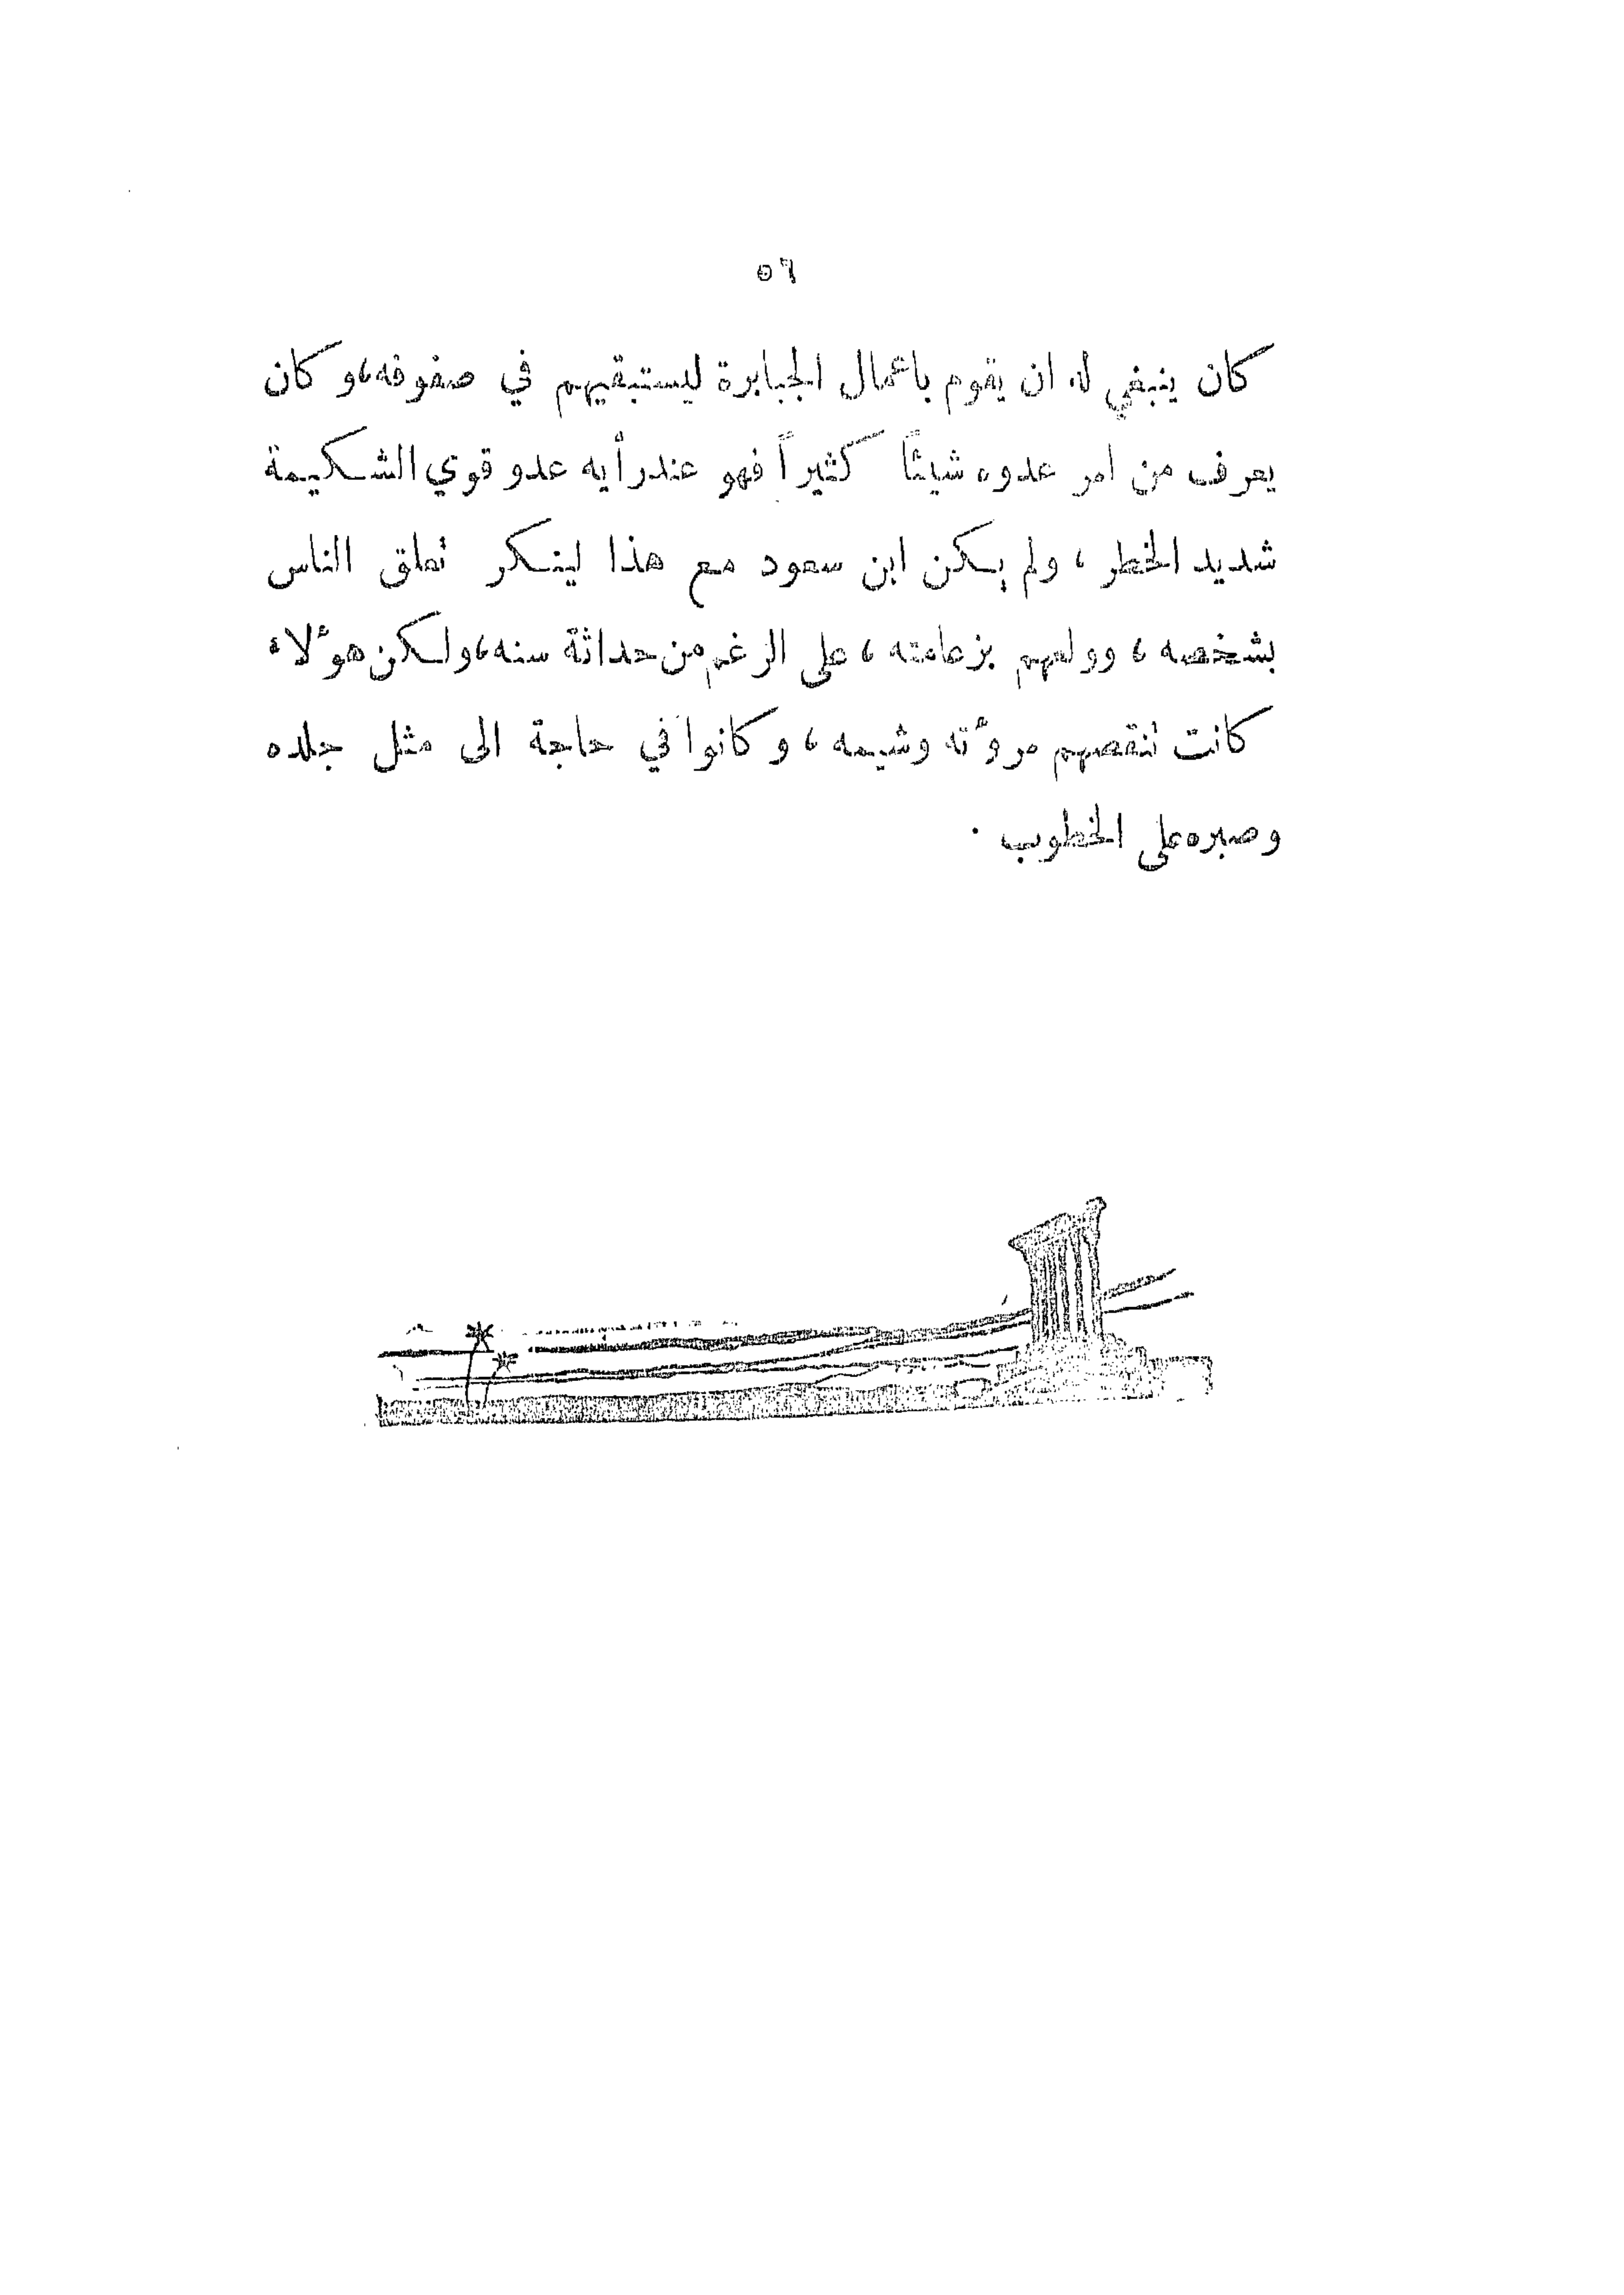 ٥٦
كان ينبغي له ان يقوم باعمال الجبابرة ليستبقيهم في صفوفه، وكان
يعرف من امر عدوه شيئاً كثيراً فهو عند رأيه عدو قوي الشكيمة
شديد الخطر، ولم يكن ابن سعود مع هذا لينكر تعلق الناس
بشخصه، وولعهم بزعامته، على الرغم من حداثة سنه، ولكن هؤلاء
كانت تنقصهم مروءته وشيمه، وكانوا في حاجة الى مثل جلده
وصبره على الخطوب.